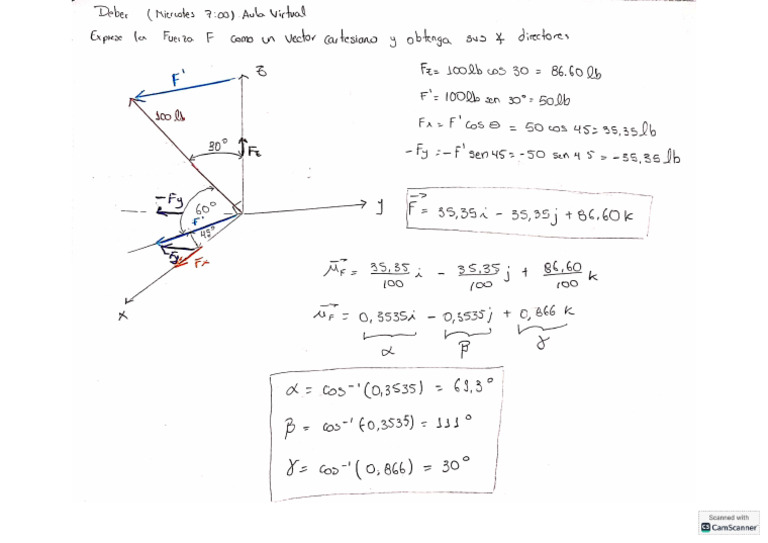 Deber (Miercoles 7:00) Aula Virtual
Exprese la Fuerza F como un vector cartesiano y obtenga sus ∡ directores
Z
F'
100 lb
30°
Fz
-Fy
60°
F'
45°
Fy
Fx
y
x
Fz = 100lb cos 30 = 86.60 lb
F' = 100lb sen 30° = 50lb
Fx = F' cos θ = 50 cos 45 = 35,35 lb
-Fy = -F' sen 45 = -50 sen 45 = -35,35 lb
F = 35,35i - 35,35j + 86.60 k
μF = 35,35/100 i - 35,35/100 j + 86,60/100 k
μF = 0,3535i - 0,3535j + 0,866 k
α β γ
α = cos⁻¹(0,3535) = 69,3°
β = cos⁻¹(-0,3535) = 111°
γ = cos⁻¹(0,866) = 30°
Scanned with
CS CamScanner